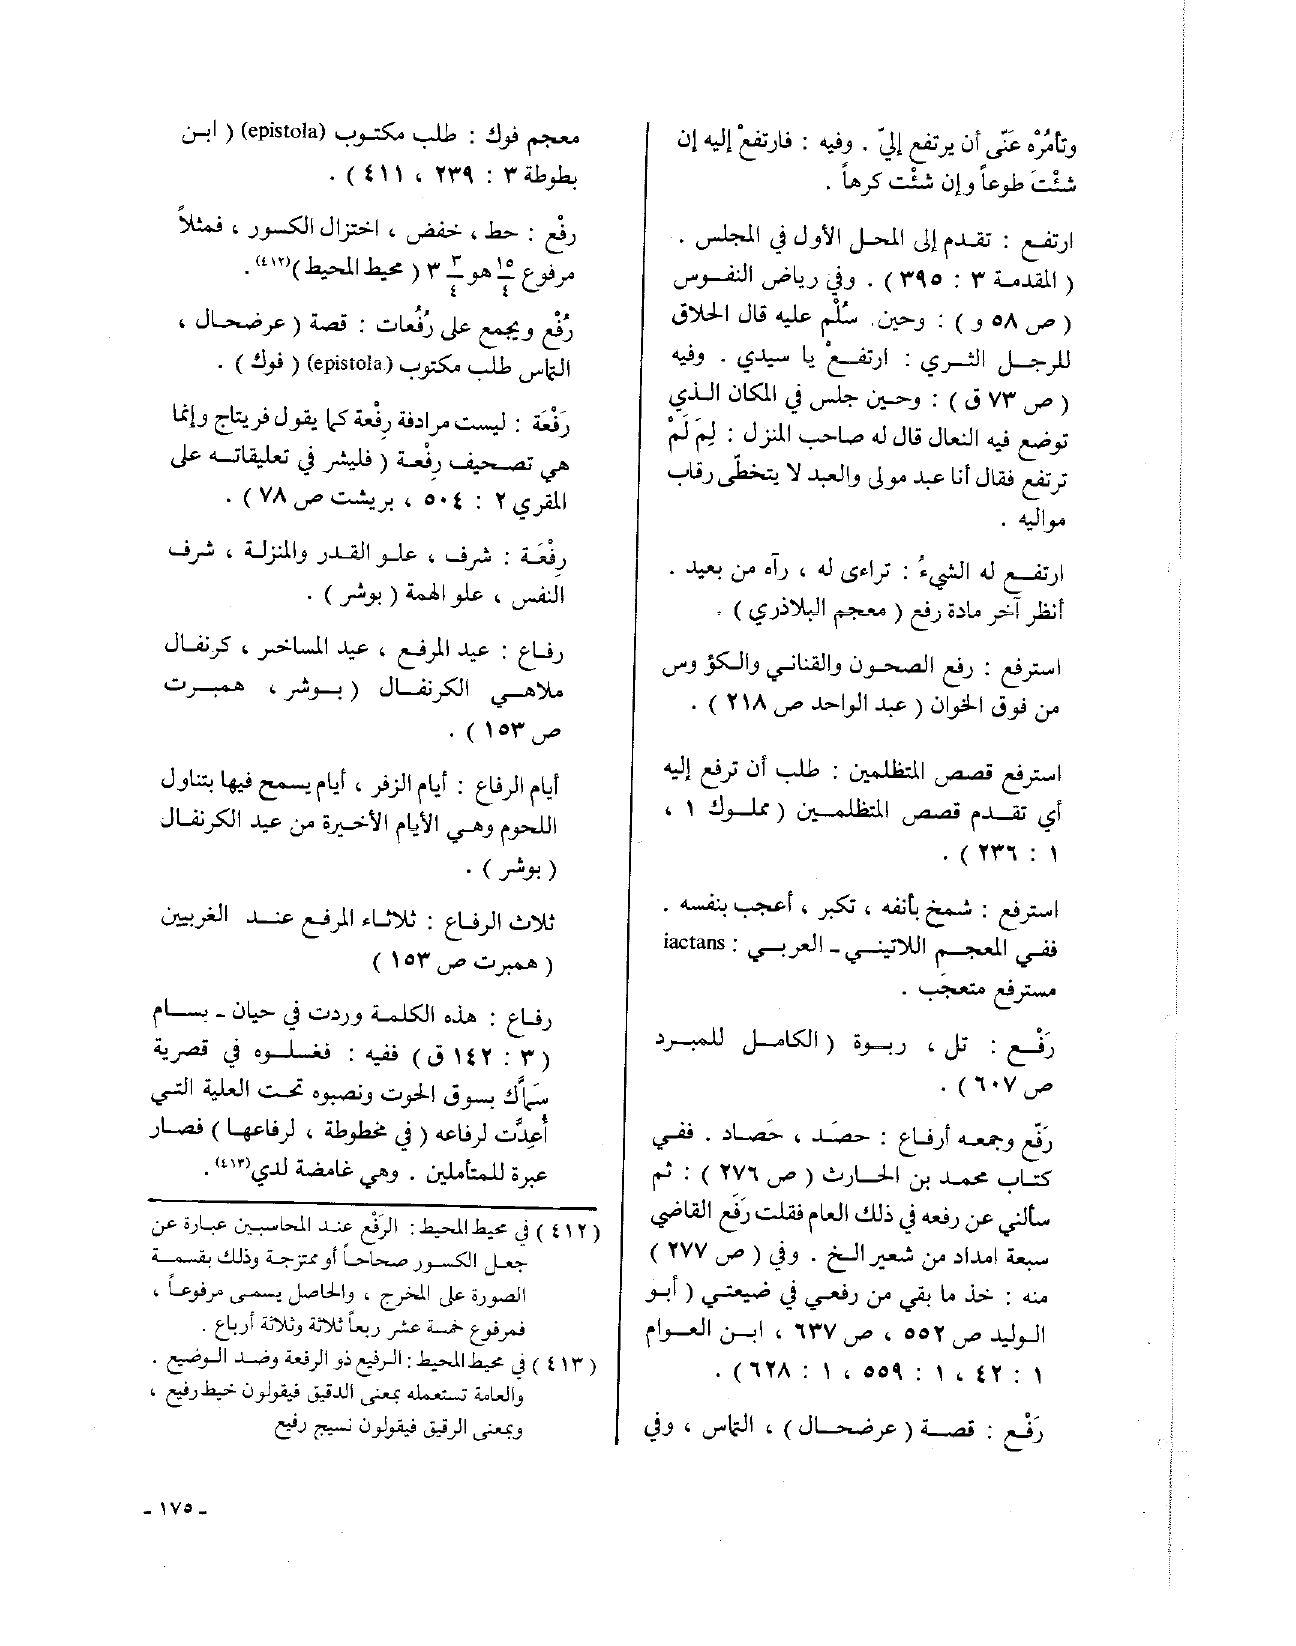 وتأمُرُه عَنّي أن يرتفع إليّ . وفيه : فارتفعْ إليه إن
شئْتَ طوعاً وإن شئْت كرهاً .
ارتفع : تقدم إلى المحل الأول في المجلس .
( المقدمة ٣ : ٣٩٥ ) . وفي رياض النفوس
( ص ٥٨ و ) : وحين سُلّم عليه قال الحلاق
للرجل الثري : ارتفعْ يا سيدي . وفيه
( ص ٧٣ ق ) : وحين جلس في المكان الذي
توضع فيه النعال قال له صاحب المنزل : لِمَ لَمْ
ترتفع فقال أنا عبد مولى والعبد لا يتخطّى رقاب
مواليه .
ارتفع له الشيءُ : تراءى له ، رآه من بعيد .
أنظر آخر مادة رفع ( معجم البلاذري ) .
استرفع : رفع الصحون والقناني والكؤوس
من فوق الخوان ( عبد الواحد ص ٢١٨ ) .
استرفع قصص المتظلمين : طلب أن ترفع إليه
أي تقدم قصص المتظلمين ( مملوك ١ ،
١ : ٢٣٦ ) .
استرفع : شمخ بأنفه ، تكبر ، أعجب بنفسه .
ففي المعجم اللاتيني ـ العربي : iactans
مسترفع متعجّب .
رَفْع : تل ، ربوة ( الكامل للمبرد
ص ٦٠٧ ) .
رَفْع وجمعه أرفاع : حصْد ، حَصاد . ففي
كتاب محمد بن الحارث ( ص ٢٧٦ ) : ثم
سألني عن رفعه في ذلك العام فقلت رَفَع القاضي
سبعة امداد من شعير الخ . وفي ( ص ٢٧٧ )
منه : خذ ما بقي من رفعي في ضيعتي ( أبو
الوليد ص ٥٥٢ ، ص ٦٣٧ ، ابن العوام
١ : ٤٢ ، ١ : ٥٥٩ ، ١ : ٦٢٨ ) .
رَفْع : قصة ( عرضحال ) ، التماس ، وفي
معجم فوك : طلب مكتوب (epistola) ( ابن
بطوطة ٣ : ٢٣٩ ، ٤١١ ) .
رفْع : حط ، خفض ، اختزال الكسور ، فمثلاً
مرفوع ١٥/٤ هو ٣/٤ ٣ ( محيط المحيط )(٤١٢) .
رُفْع ويجمع على رُفُعات : قصة ( عرضحال ،
التماس طلب مكتوب (epistola) ( فوك ) .
رَفْعَة : ليست مرادفة رِفْعة كما يقول فريتاج وإنما
هي تصحيف رِفْعة ( فليشر في تعليقاته على
المقري ٢ : ٥٠٤ ، بريشت ص ٧٨ ) .
رِفْعَة : شرف ، علو القدر والمنزلة ، شرف
النفس ، علو الهمة ( بوشر ) .
رفاع : عيد المرفع ، عيد المساخر ، كرنفال
ملاهي الكرنفال ( بوشر ، همبرت
ص ١٥٣ ) .
أيام الرفاع : أيام الزفر ، أيام يسمح فيها بتناول
اللحوم وهي الأيام الأخيرة من عيد الكرنفال
( بوشر ) .
ثلاث الرفاع : ثلاثاء المرفع عند الغربيين
( همبرت ص ١٥٣ )
رفاع : هذه الكلمة وردت في حيان ـ بسام
( ٣ : ١٤٢ ق ) ففيه : فغلوه في قصرية
سَمَّاك بسوق الحوت ونصبوه تحت العلية التي
أُعِدَّت لرفاعه ( في مخطوطة ، لرفاعها ) فصار
عبرة للمتأملين . وهي غامضة لدي(٤١٣) .
( ٤١٢ ) في محيط المحيط : الرَفْع عند المحاسبين عبارة عن
جعل الكسور صحاحاً أو ممتزجة وذلك بقسمة
الصورة على المخرج ، والحاصل يسمى مرفوعاً ،
فمرفوع خمسة عشر ربعاً ثلاثة وثلاثة أرباع .
( ٤١٣ ) في محيط المحيط : الرفيع ذو الرفعة وضد الوضيع .
والعامة تستعمله بمعنى الدقيق فيقولون خيط رفيع ،
وبمعنى الرقيق فيقولون نسيج رفيع
ـ ١٧٥ ـ